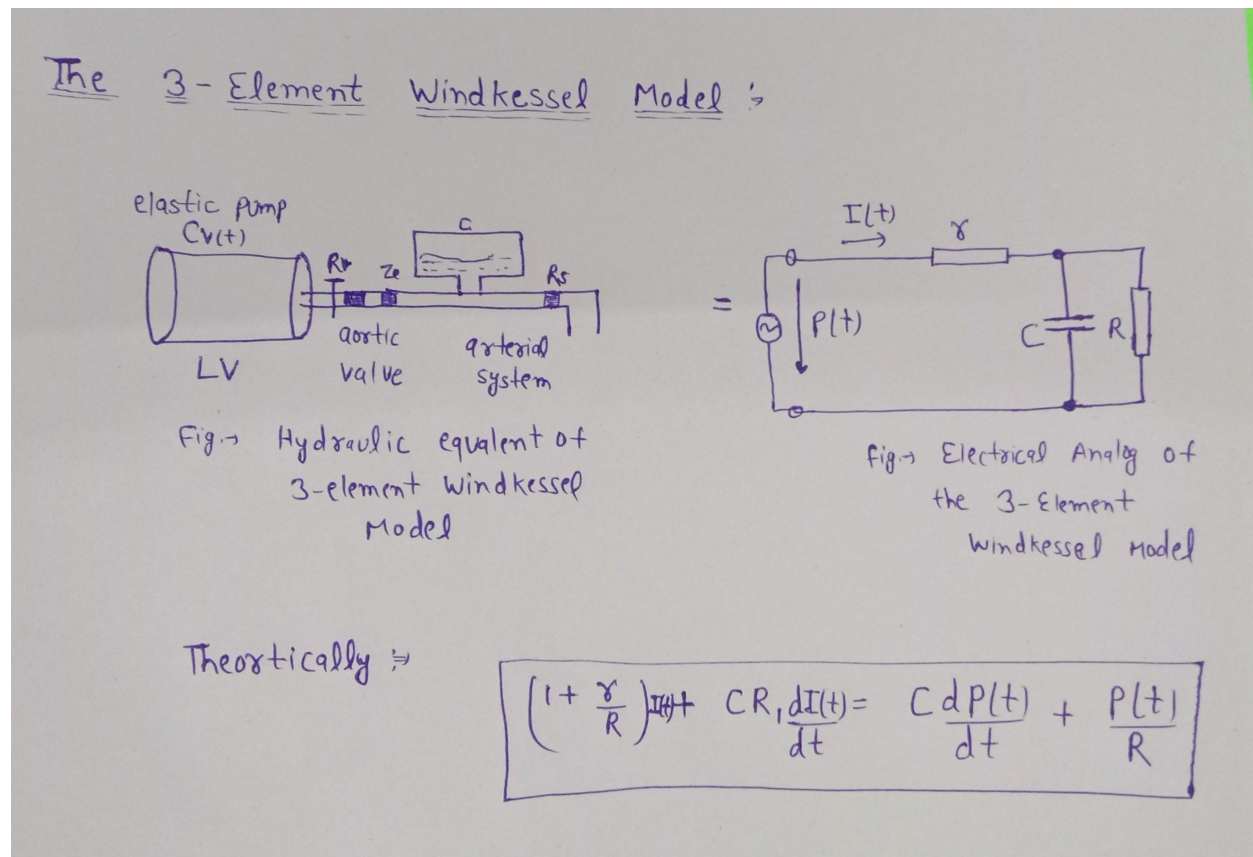 The 3-Element Windkessel Model :-
elastic pump
Cv(t)
LV
Rv
Zc
aortic
valve
C
Rs
arterial
system
Fig.→ Hydraulic equalent of
3-element Windkessel
Model
=
I(t)
r
P(t)
C
R
Fig.→ Electrical Analog of
the 3-Element
Windkessel Model
Theortically :→
(1 + r/R) I(t) + CR₁ dI(t)/dt = C dP(t)/dt + P(t)/R